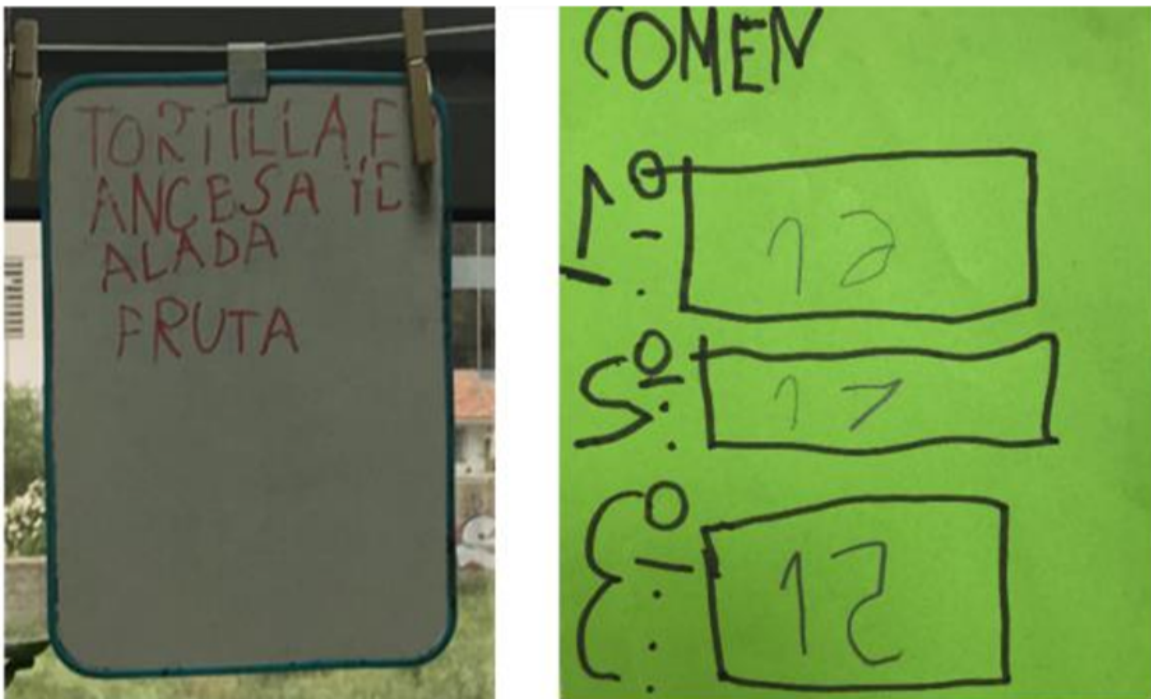 TORTILLA F
ANCESA YE
ALADA
FRUTA
COMEN
1º. 12
2º: 17
3º: 15